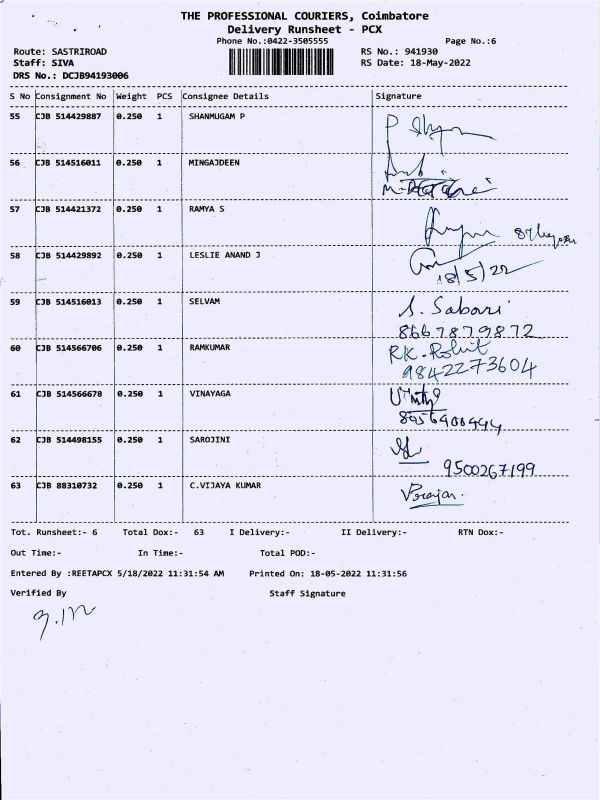 THE PROFESSIONAL COURIERS, Coimbatore
Delivery Runsheet - PCX
Phone No.:0422-3505555 Page No.:6
Route: SASTRIROAD RS No.: 941930
Staff: SIVA RS Date: 18-May-2022
DRS No.: DCJB94193006
S No Consignment No Weight PCS Consignee Details Signature
55 CJB 514429887 0.250 1 SHANMUGAM P
56 CJB 514516011 0.250 1 MINGAJDEEN
57 CJB 514421372 0.250 1 RAMYA S
58 CJB 514429892 0.250 1 LESLIE ANAND J
18/5/22
59 CJB 514516013 0.250 1 SELVAM S. Sabari
8667879872
60 CJB 514566706 0.250 1 RAMKUMAR RK. Rohit
9842273604
61 CJB 514566678 0.250 1 VINAYAGA
62 CJB 514498155 0.250 1 SAROJINI
9500267199
63 CJB 88310732 0.250 1 C.VIJAYA KUMAR
Tot. Runsheet:- 6 Total Dox:- 63 I Delivery:- II Delivery:- RTN Dox:-
Out Time:- In Time:- Total POD:-
Entered By :REETAPCX 5/18/2022 11:31:54 AM Printed On: 18-05-2022 11:31:56
Verified By Staff Signature